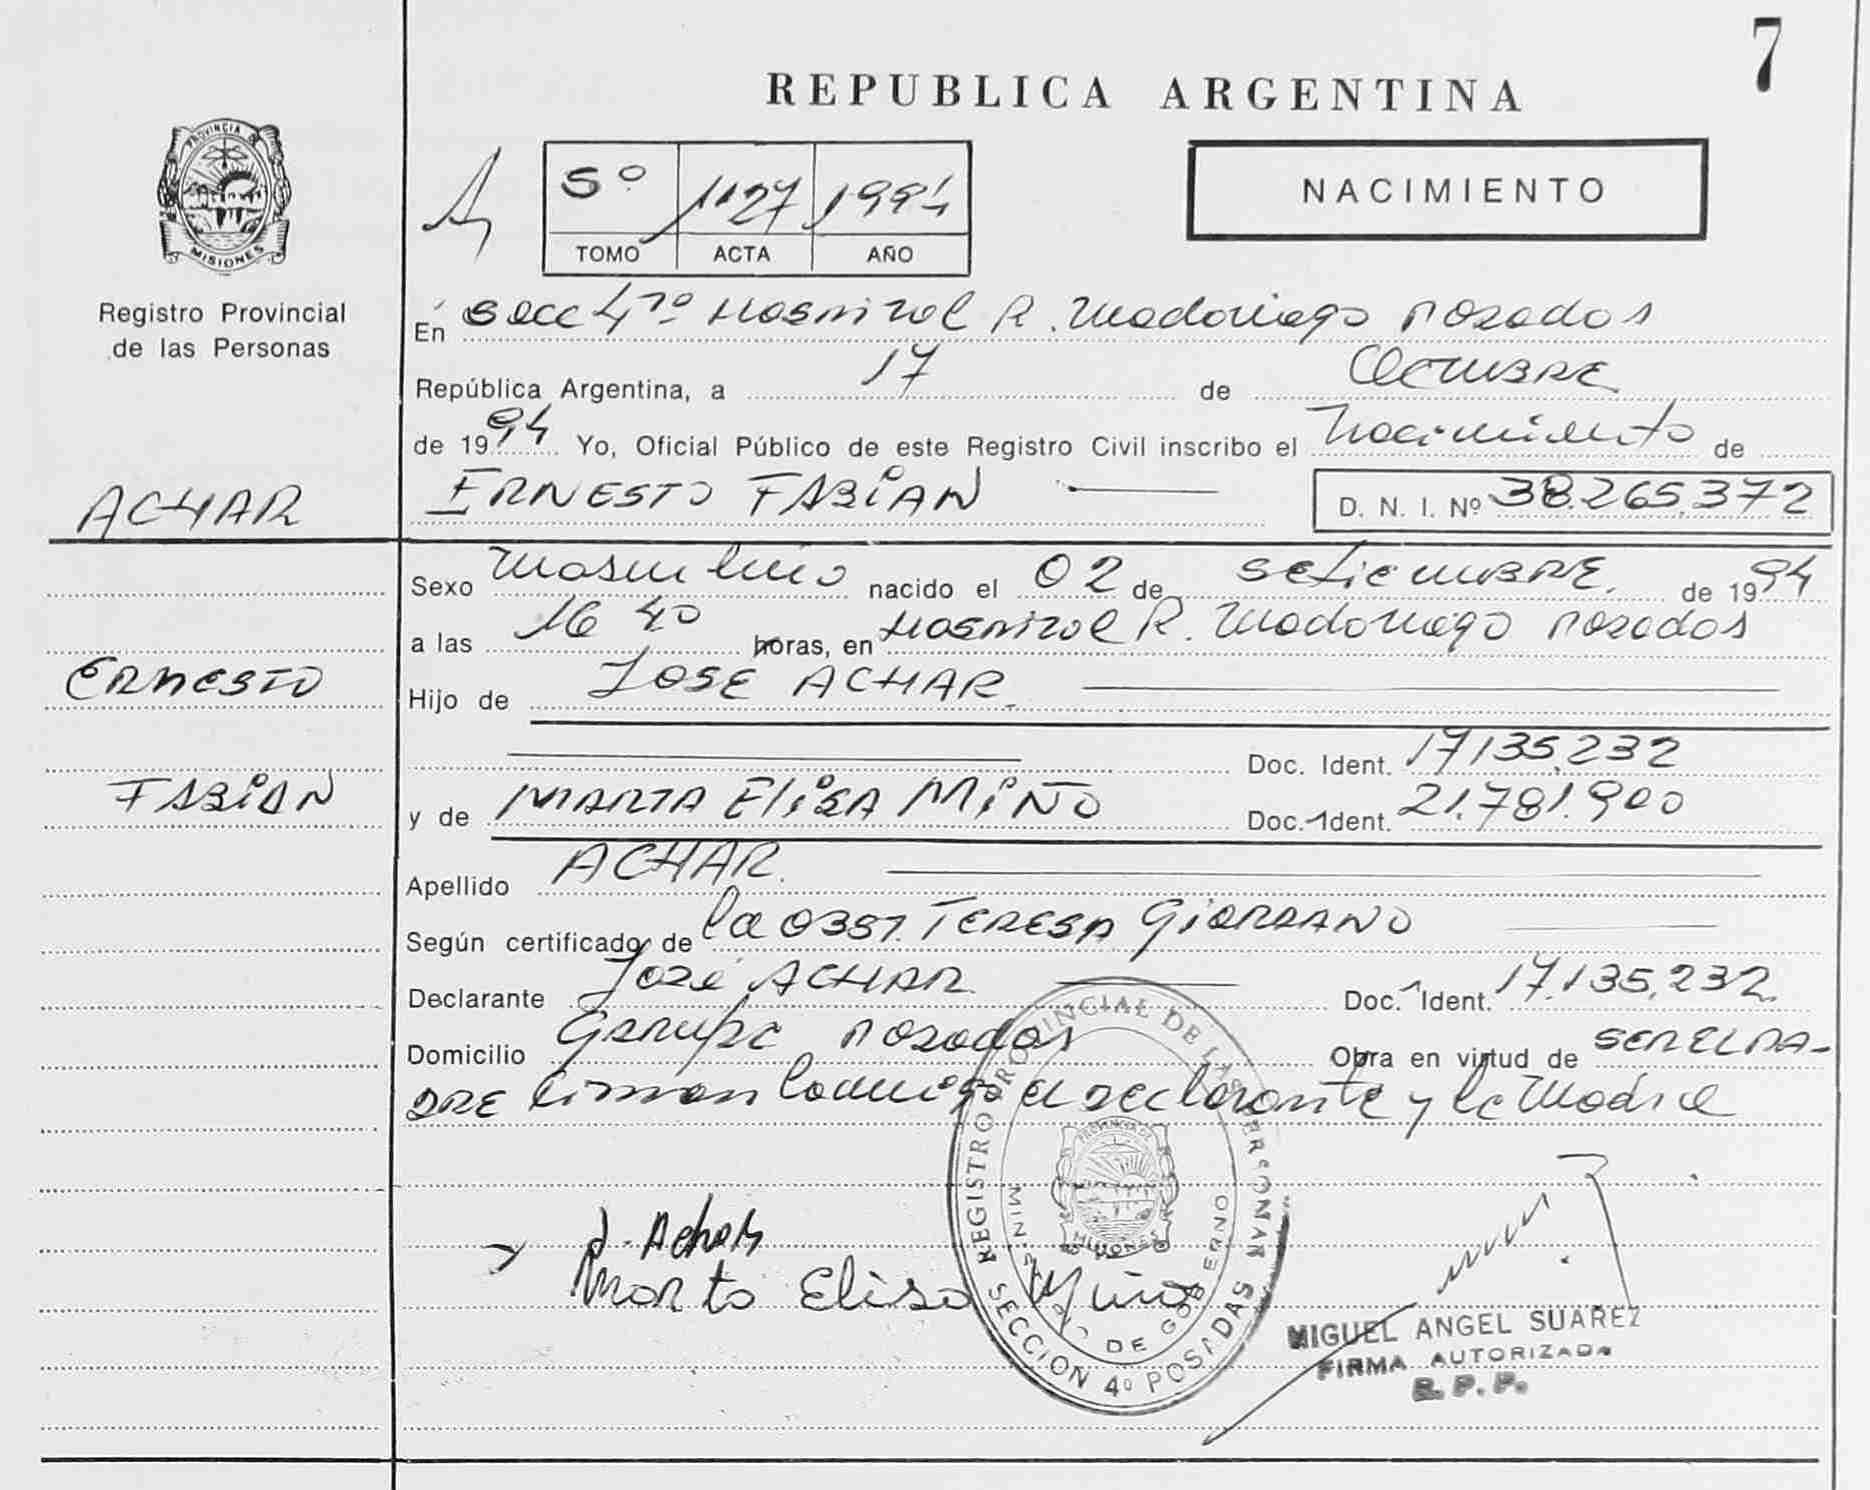 7
REPUBLICA ARGENTINA
PROVINCIA DE
MISIONES
5º 1127 1994
TOMO ACTA AÑO
NACIMIENTO
Registro Provincial
de las Personas
En Secc 4ta Hospital R. Madariaga Posadas
República Argentina, a 17 de Octubre
de 1994 Yo, Oficial Público de este Registro Civil inscribo el Nacimiento de
ACHAR
ERNESTO FABIAN D. N. I. Nº 38.265.372
Sexo Masculino nacido el 02 de Setiembre de 1994
a las 16 40 horas, en Hospital R. Madariaga Posadas
ERNESTO
Hijo de JOSE ACHAR
Doc. Ident. 17.135.232
FABIAN
y de MARTA ELISA MIÑO Doc. Ident. 21.781.900
Apellido ACHAR
Según certificado de la Obst. TERESA GIORDANO
Declarante José ACHAR Doc. Ident. 17.135.232
Domicilio Garupá Posadas Obra en virtud de SER EL PA-
DRE firman conmigo el declarante y la Madre
J. Achar
Marta Elisa Miño
REGISTRO PROVINCIAL DE LAS PERSONAS
SECCION 4º POSADAS
MINISTERIO DE GOBIERNO
PROVINCIA DE
MISIONES
MIGUEL ANGEL SUAREZ
FIRMA AUTORIZADA
R. P. P.